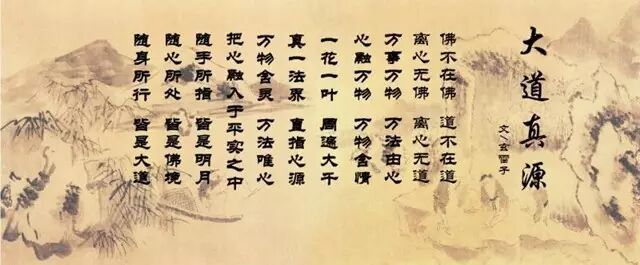 大道真源
文\玄 子
佛不在佛 道不在道
离心无佛 离心无道
万事万物 万法由心
心融万物 万物含情
一花一叶 周遍大千
真一法界 直指心源
万物含灵 万法唯心
把心融入于平实之中
随手所指 皆是明月
随心所处 皆是佛境
随身所行 皆是大道